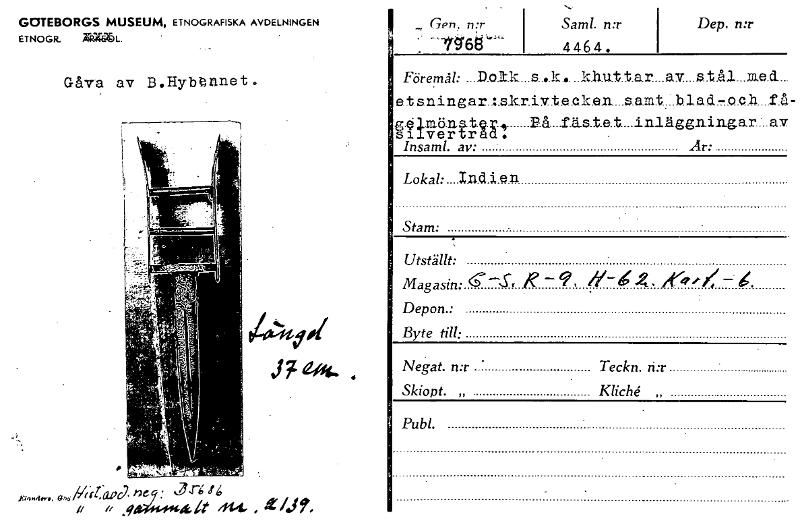 GÖTEBORGS MUSEUM, ETNOGRAFISKA AVDELNINGEN
ETNOGR.
Gåva av B.Hybennet.
Längd
37 cm.
Hist.avd.neg: B5686
" " gammalt nr. 2139.
Gen. n:r Saml. n:r Dep. n:r
7968 4464.
Föremål: Dolk s.k. khuttar av stål med
etsningar:skrivtecken samt blad-och få-
gelmönster. På fästet inläggningar av
silvertråd.
Insaml. av: År:
Lokal: Indien
Stam:
Utställt:
Magasin: G-S. R-9. H-62. Kart.-6.
Depon.:
Byte till:
Negat. n:r Teckn. n:r
Skiopt. „ Kliché „
Publ.